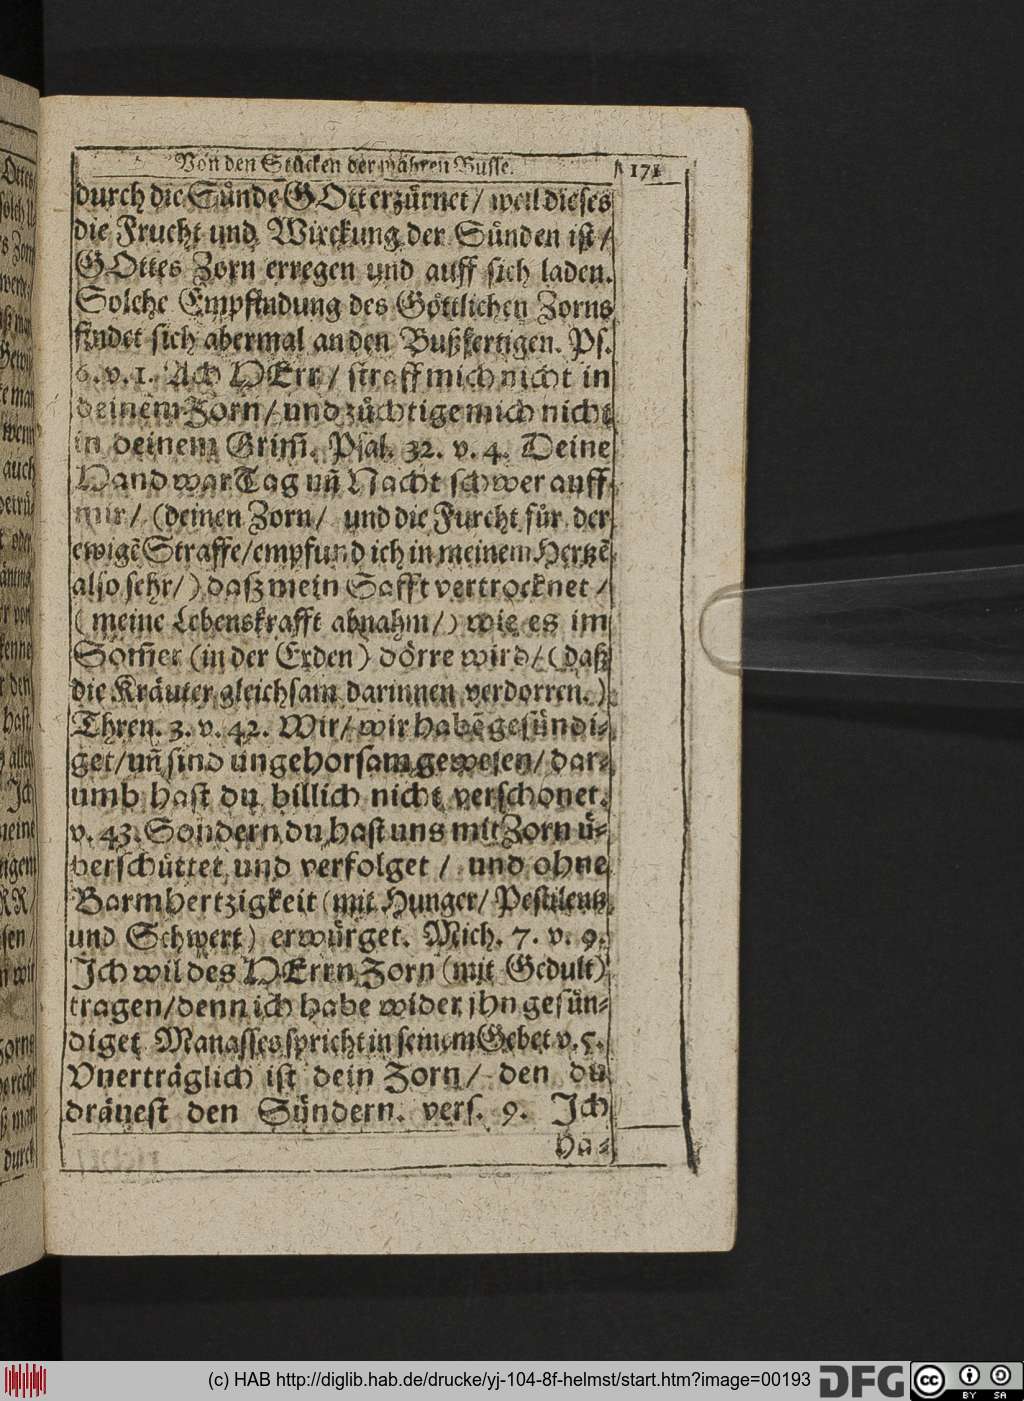 Von den Stücken der wahren Busse. 171
durch die Sünde GOtt erzürnet / weil dieses
die Frucht und Wirckung der Sünden ist /
GOttes Zorn erregen und auff sich laden.
Solche Empfindung des Göttlichen Zorns
findet sich abermal an den Bußfertigen. Ps.
6. v. 1. Ach HErr / straff mich nicht in
deinem Zorn / und züchtige mich nicht
in deinem Grim̃. Psal. 32. v. 4. Deine
Hand war Tag uñ Nacht schwer auff
mir / (deinen Zorn / und die Furcht für der
ewigẽ Straffe / empfund ich in meinem Hertzẽ
also sehr / ) daß mein Safft vertrocknet /
( meine Lebenskrafft abnahm / ) wie es im
Som̃er (in der Erden) dörre wird / (daß
die Kräuter gleichsam darinnen verdorren.)
Thren. 3. v. 42. Wir / wir habẽ gesündi-
get / uñ sind ungehorsam gewesen / dar-
umb hast du billich nicht verschonet.
v. 43. Sondern du hast uns mit Zorn ü-
berschüttet und verfolget / und ohne
Barmhertzigkeit (mit Hunger / Pestilentz
und Schwert) erwürget. Mich. 7. v. 9.
Ich wil des HErrn Zorn (mit Gedult)
tragen / denn ich habe wider jhn gesün-
diget. Manasses spricht in seinem Gebet v. 5.
Vnerträglich ist dein Zorn / den du
dräuest den Sündern. vers. 9. Ich
ha-
(c) HAB http://diglib.hab.de/drucke/yj-104-8f-helmst/start.htm?image=00193
DFG
cc BY SA